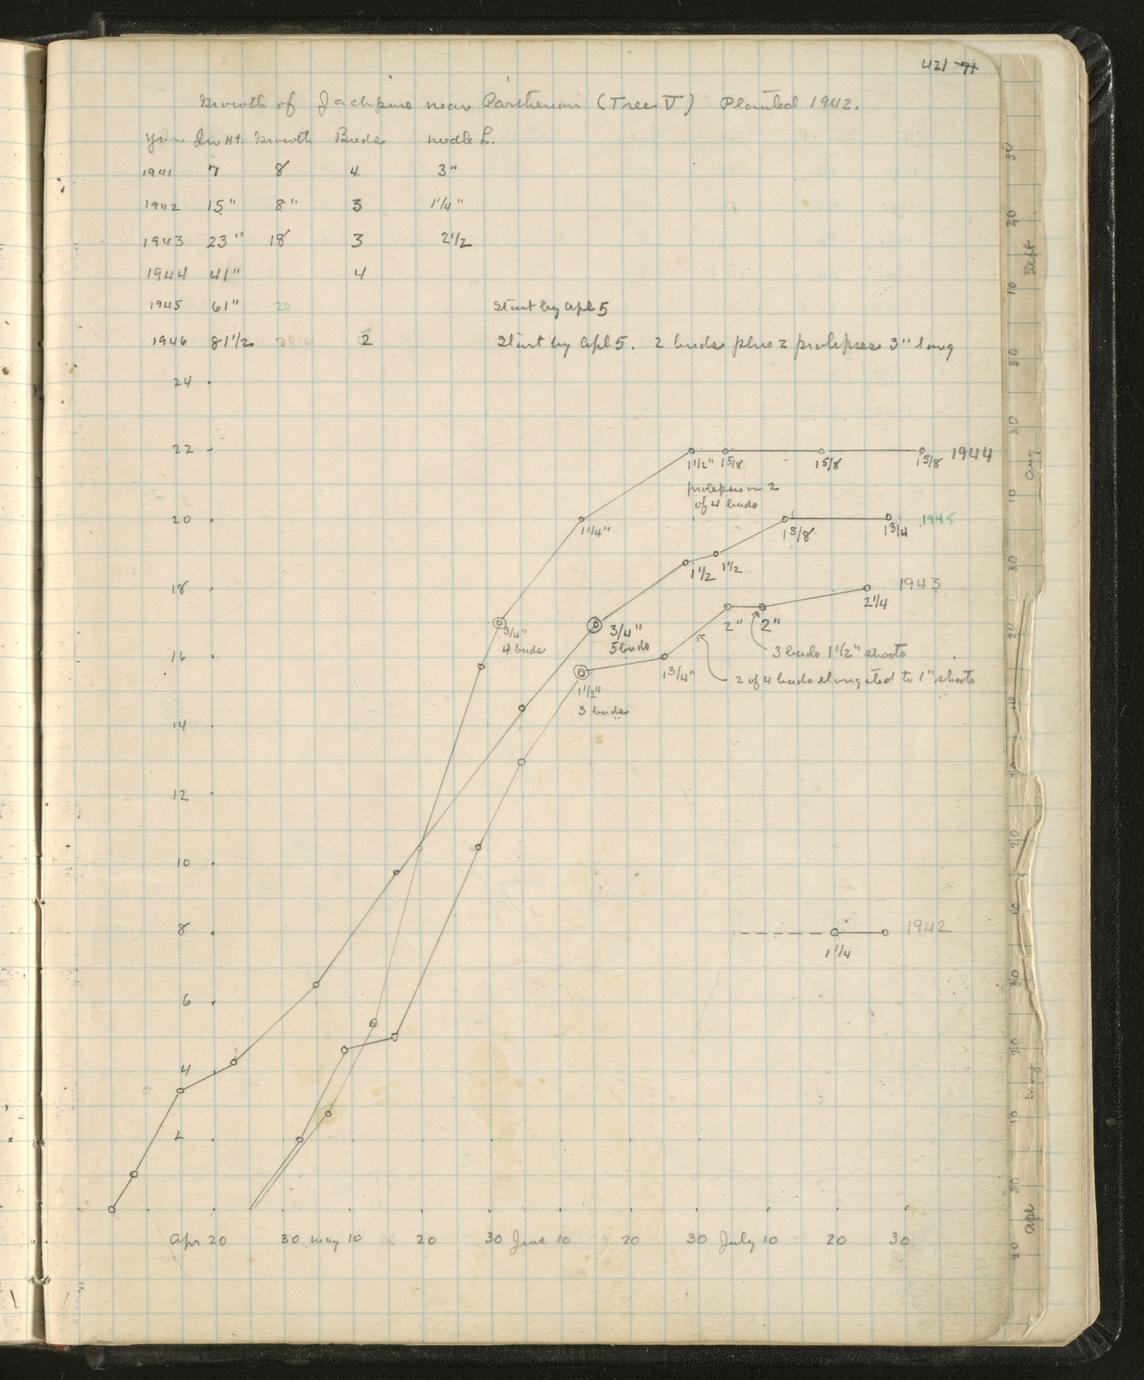 421 71
Growth of Jackpine near Parthenon (Tree V) Planted 1942.
Year Inv Ht. Growth Buds needle L.
1941 7 8 4 3"
1942 15" 8" 3 1 1/4"
1943 23" 18 3 2 1/2
1944 41" 4
1945 61" 20 Start by Apl 5
1946 81 1/2 2 Start by Apl 5. 2 buds plus 2 prolepses 3" long
24
22
1 1/2" 1 5/8 1 5/8 1 5/8 1944
prolepses on 2
of 4 buds
20
1 1/4" 1 5/8 1 3/4 1945
18
1 1/2 1 1/2 2 1/4 1943
3/4"
4 buds
3/4"
5 buds
2" 2"
3 buds 1 1/2" shoots
16
1 3/4"
2 of 4 buds elongated to 1" shoots
1 1/2"
3 buds
14
12
10
8
1942
1 1/4
6
4
2
Apr 20 30 May 10 20 30 June 10 20 30 July 10 20 30
30
20
Sept
10
30
20
Aug
10
30
20
20
10
30
20
May
10
30
Apl
20